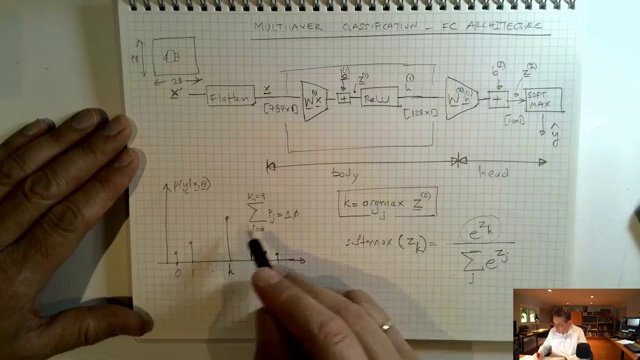 MULTILAYER CLASSIFICATION - FC ARCHITECTURE
28
28
x'
Flatten
x
[784x1]
W⁽¹⁾x
b⁽¹⁾
+
z⁽¹⁾
ReLU
h⁽¹⁾
[128x1]
W⁽²⁾h⁽¹⁾
b⁽²⁾
+
z⁽²⁾
[10x1]
SOFT
MAX
ŷ
body
head
p(y|x,θ)
K=9
∑ ŷj = 1.0
j=0
0 1 k
k = argmax z⁽²⁾
j
softmax (z_k) = e^{z_k}
∑ e^{z_j}
j